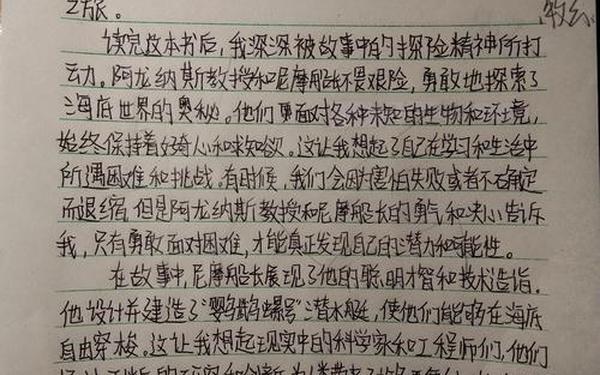 之旅。
读完这本书后，我深深被故事中的探险精神所打
动。阿龙纳斯教授和尼摩船长不畏艰险，勇敢地探索了
海底世界的奥秘。他们面对各种未知的生物和环境，
始终保持着好奇心和求知欲。这让我想起了自己在学习和生活中
所遇困难和挑战。有时候，我们会因害怕失败或者不确定
而退缩，但是阿龙纳斯教授和尼摩船长的勇气和决心告诉
我，只有勇敢面对困难，才能真正发现自己的潜力和可能性。
在故事中，尼摩船长展现了他的聪明才智和技术造诣。
他设计并建造了“鹦鹉螺号”潜水艇，使他们能够在海底
自由穿梭。这让我想起现实中的科学家和工程师们，他们